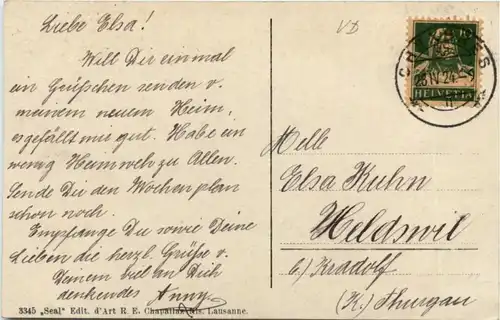 Liebe Elsa!
Will Dir einmal
ein Grüßchen senden v.
meinem neuem Heim,
es gefällt mir gut. Habe ein
wenig Heimweh zu Allen.
Sende Du den Wochenplan
schon noch.
Empfange Du sowie Deine
Lieben die herzl. Grüße v.
Deinem viel an Dich
denkendes Anny.
3345 „Seal" Edit. d'Art R. E. Chapallaz fils, Lausanne.
VD
HELVETIA
28 IV 24
Melle
Elsa Kuhn
Heldswil
b/ Kradolf
(K.) Thurgau